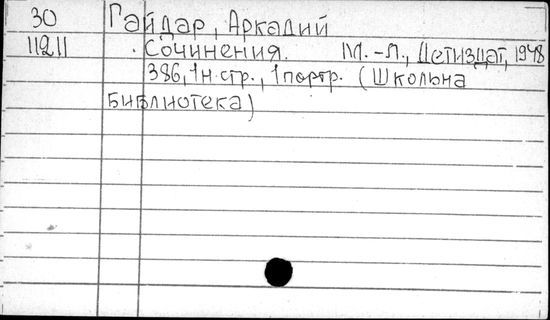 30 Гайдар, Аркадий
11211 Сочинения. М.-Л., Детиздат, 1948
386, 1 н. стр., 1 портр. (Школьна
библиотека)